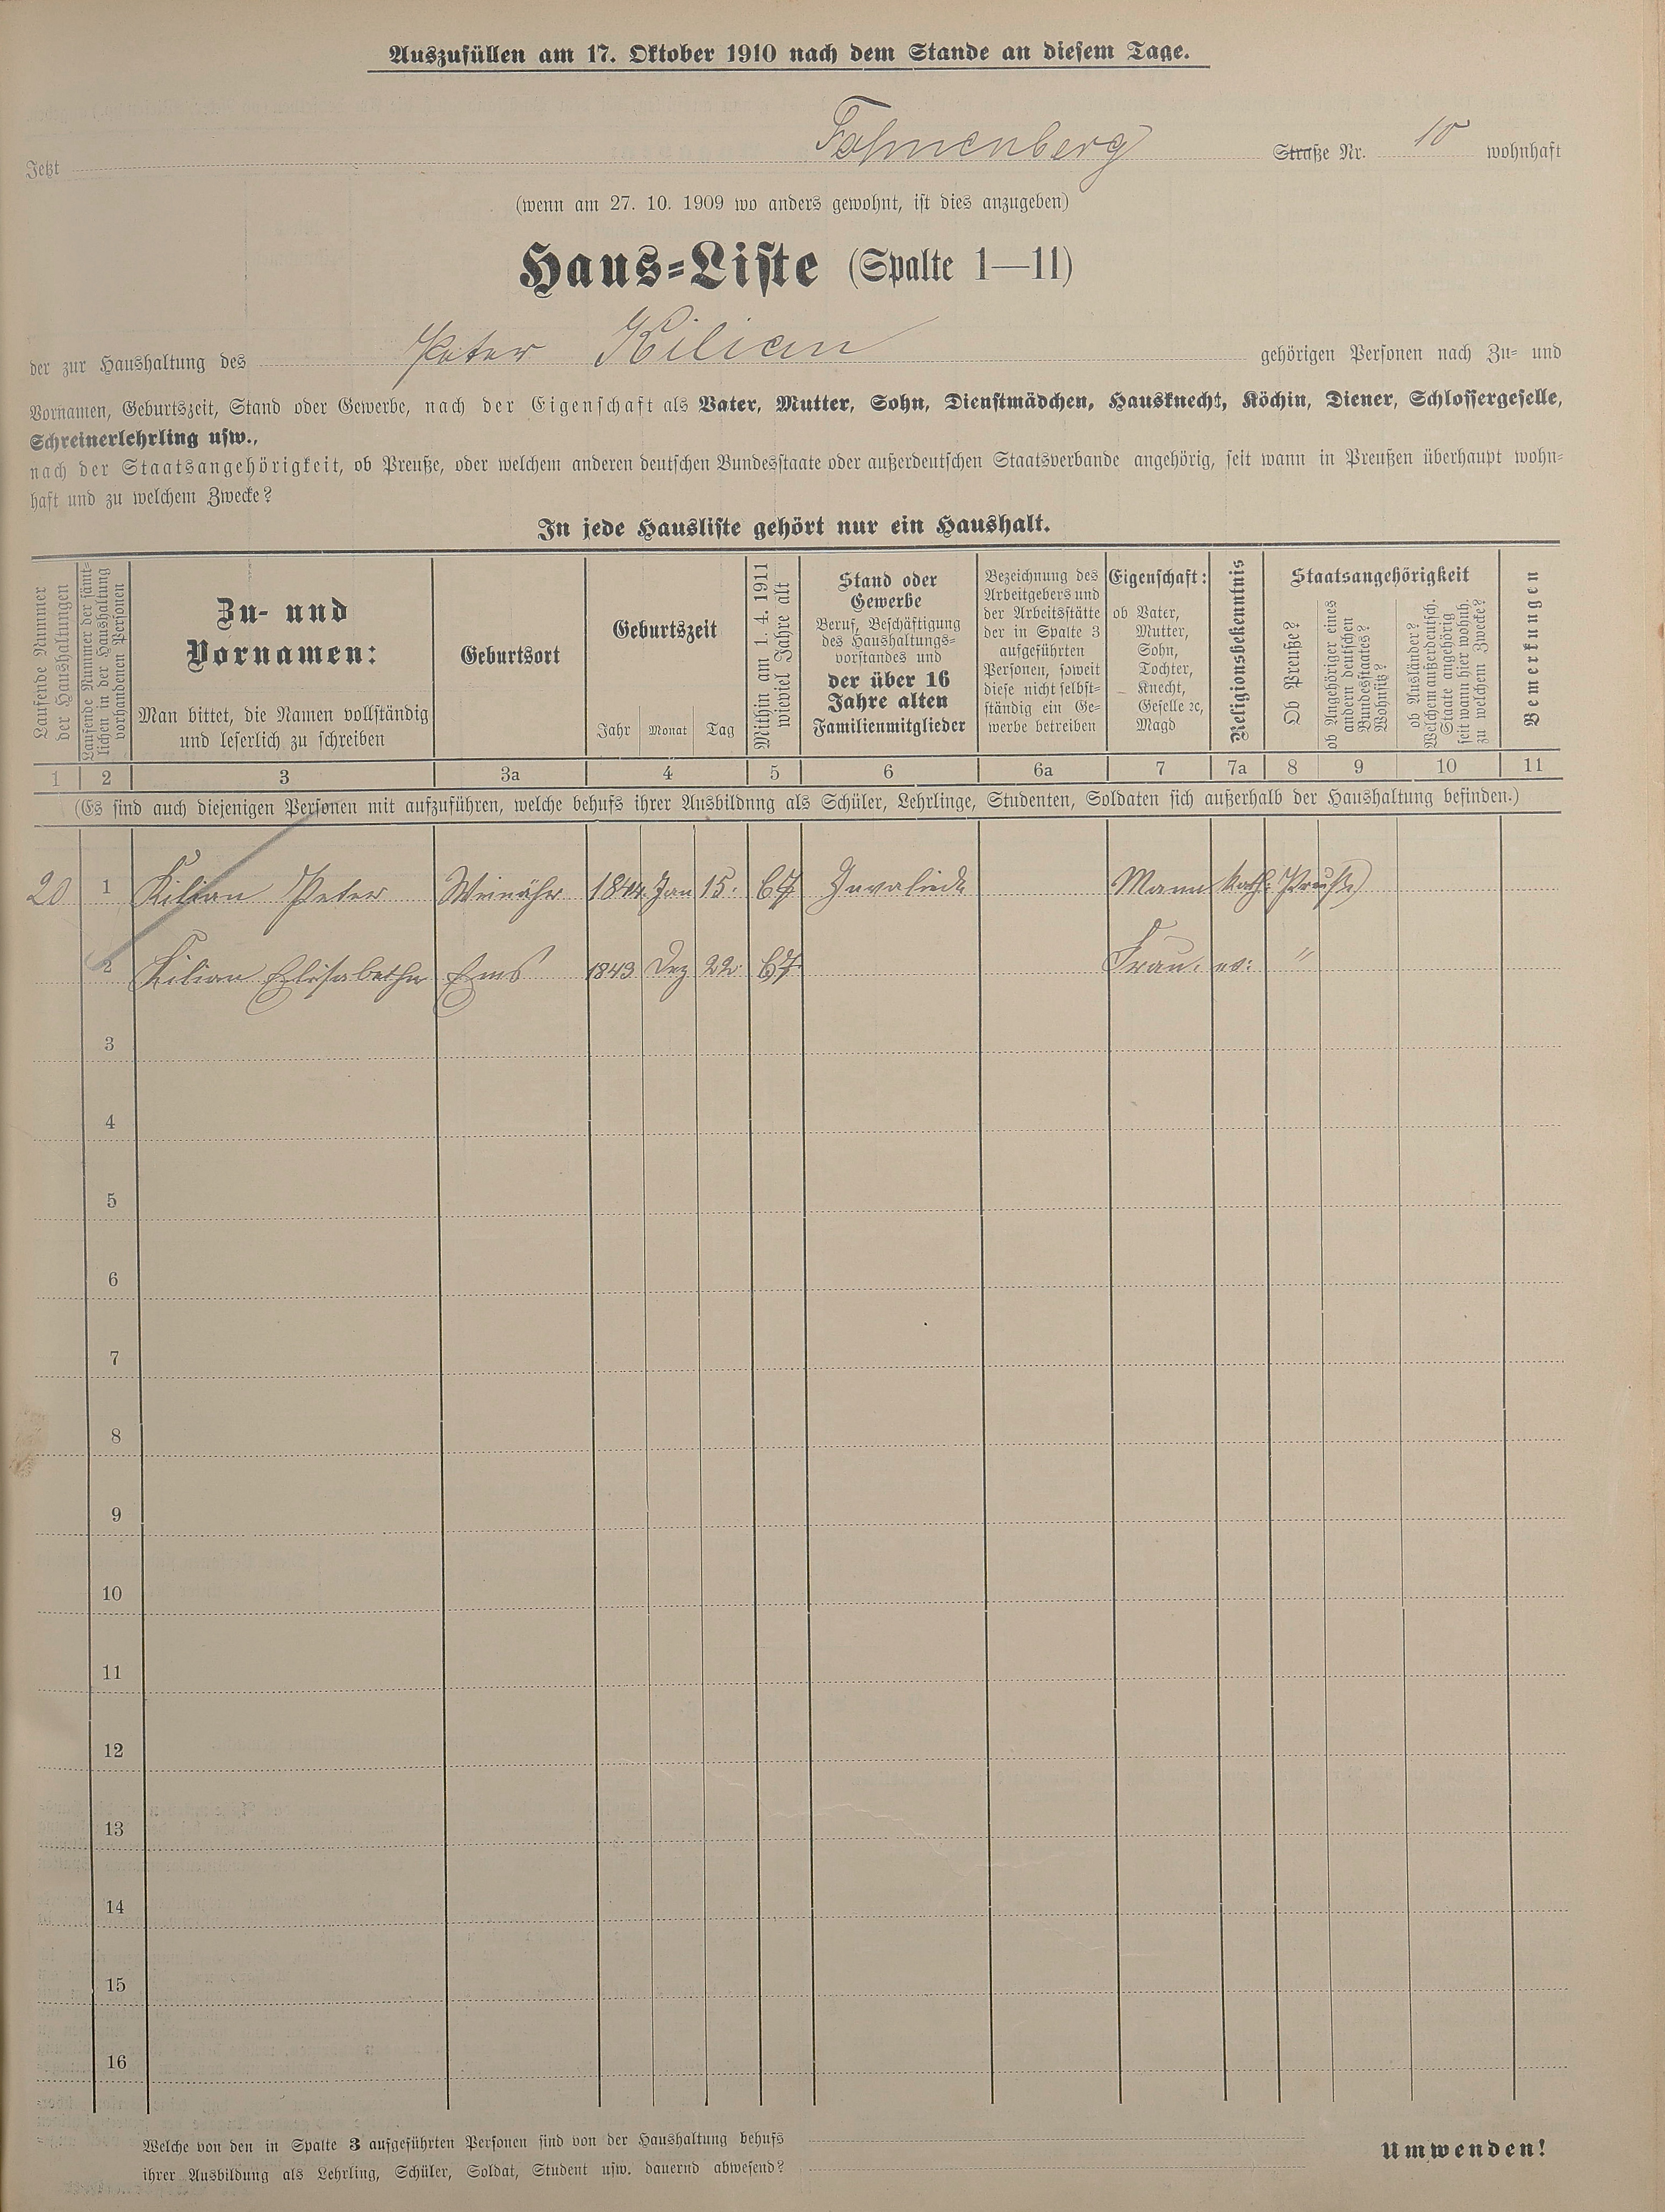 Auszufüllen am 17. Oktober 1910 nach dem Stande an diesem Tage.
Jetzt Fahnenberg Straße Nr. 10 wohnhaft
(wenn am 27. 10. 1909 wo anders gewohnt, ist dies anzugeben)
Haus-Liste (Spalte 1—11)
der zur Haushaltung des Peter Kilian gehörigen Personen nach Zu- und
Vornamen, Geburtszeit, Stand oder Gewerbe, nach der Eigenschaft als Vater, Mutter, Sohn, Dienstmädchen, Hausknecht, Köchin, Diener, Schlossergeselle,
Schreinerlehrling usw.,
nach der Staatsangehörigkeit, ob Preuße, oder welchem anderen deutschen Bundesstaate oder außerdeutschen Staatsverbande angehörig, seit wann in Preußen überhaupt wohn-
haft und zu welchem Zwecke?
In jede Hausliste gehört nur ein Haushalt.
Laufende Nummer
der Haushaltungen
Laufende Nummer der sämt-
lichen in der Haushaltung
vorhandenen Personen
Zu- und
Vornamen:
Man bittet, die Namen vollständig
und leserlich zu schreiben
Geburtsort
Geburtszeit
Jahr Monat Tag
Mithin am 1. 4. 1911
wieviel Jahre alt
Stand oder
Gewerbe
Beruf, Beschäftigung
des Haushaltungs-
vorstandes und
der über 16
Jahre alten
Familienmitglieder
Bezeichnung des
Arbeitgebers und
der Arbeitsstätte
der in Spalte 3
aufgeführten
Personen, soweit
diese nicht selbst-
ständig ein Ge-
werbe betreiben
Eigenschaft:
ob Vater,
Mutter,
Sohn,
Tochter,
Knecht,
Geselle ꝛc,
Magd
Religionsbekenntnis
Staatsangehörigkeit
Ob Preuße?
ob Angehöriger eines
andern deutschen
Bundesstaates?
Wohnsitz?
ob Ausländer?
Welchem außerdeutsch.
Staate angehörig
seit wann hier wohnh.
zu welchem Zwecke?
Bemerkungen
1 2 3 3a 4 5 6 6a 7 7a 8 9 10 11
(Es sind auch diejenigen Personen mit aufzuführen, welche behufs ihrer Ausbildung als Schüler, Lehrlinge, Studenten, Soldaten sich außerhalb der Haushaltung befinden.)
20 1 Kilian Peter Weinähr 1844 Jan 15. 67 Invaliede Mann kath. Preuße
2 Kilian Elisabetha Ems 1843 Dez 22. 67 Frau. ev: "
3
4
5
6
7
8
9
10
11
12
13
14
15
16
Welche von den in Spalte 3 aufgeführten Personen sind von der Haushaltung behufs
ihrer Ausbildung als Lehrling, Schüler, Soldat, Student usw. dauernd abwesend?
Umwenden!